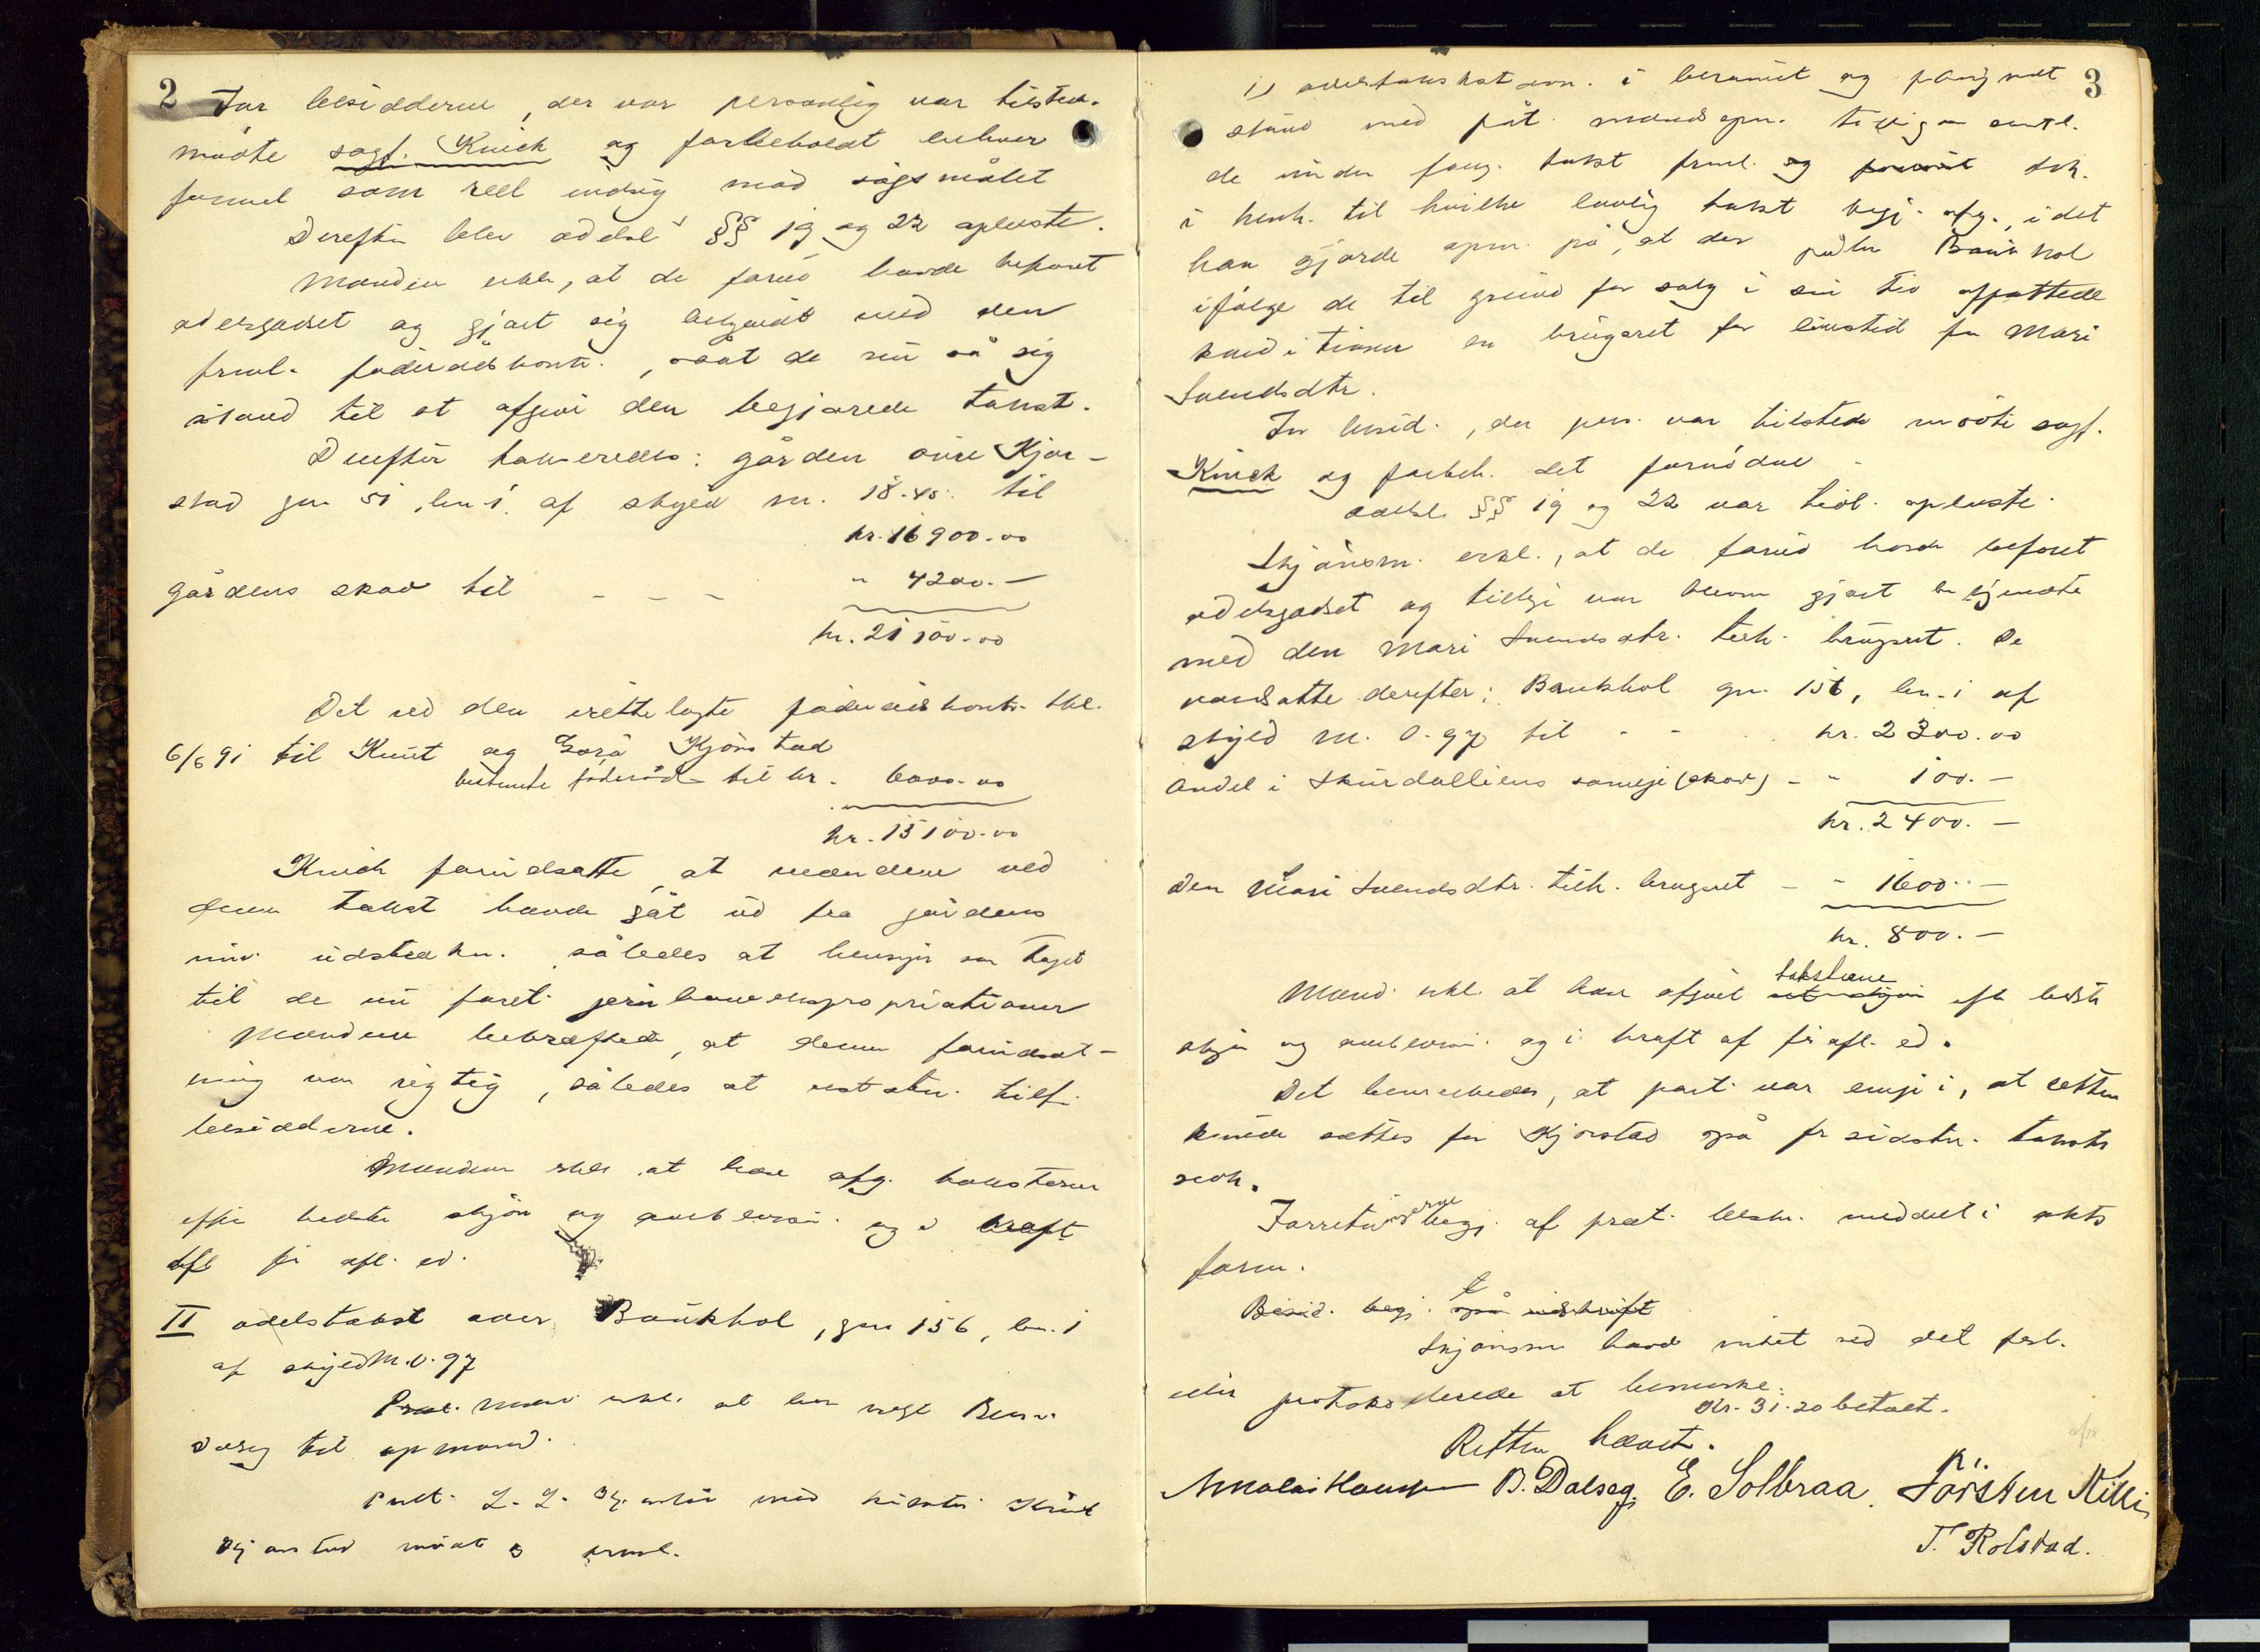 2
For besidderne, der var personlig var tilstede.
mödte sagf. Kinck og forbeholdt enhver
formel som reel indsig. mod sögsmålet
Derefter blev odelsl. §§ 19 og 22 oplæste.
Mændene erkl., at de forud havde beforet
odelsgodset og gjort sig bekjendt med den
freml. föderådskontr., så at de nu så sig
istand til at afgive den begjærede takst.
Derefter taxeredes: gården övre Kjor-
stad gn 51, bn 1. af skyld m. 18.45. til
kr. 16900.00
gårdens skov til - - - " 4200.-
kr. 21100.00
Det ved den irettelagte föderådskontr. tkl.
6/6 91 til Knut og Kjörstad
bestemte föderåd til kr. 6000.00
kr. 15100.00
Kinck forudsatte, at mændene ved
denne takst havde gåt ud fra gårdens
nuv. udstrækn. således at hensyn var taget
til de nu foret. jernbaneexpropriationer
Mændene bekræftede, at denne forudsæt-
ning var rigtig, således at erstatn. tilf.
besidderne.
Mændene erkl. at have afg. taksterne
efter bedste skjön og overbevisn. og i kraft
af fr afl. ed.
II odelstakst over Baukhol, gn 156, bn. 1
af skyld M. 0.97
mænd erkl. at have valgt Ben.
Dalseg til opmand.
L. L. med Knut
Kjorstad mödte og freml.
3
1) odelstakst i berammet og
stand med påt. mænds opn.
de under takst freml. og dok.
i henh. til hvilke lovlig takst begj. afg., idet
han gjorde opm. på, at der påhv. Baukhol
ifölge de til grund for salg i sin tid opfattede
konditioner en brugsret for livstid for Mari
Svendsdtr.
For besid., der pers. var tilstede mödte sagf.
Kinck og forbeh. det fornödne
odelsl. §§ 19 og 22 var tidl. oplæste.
Skjönsm. erkl., at de forud havde beforet
odelsgodset og tillige var bleven gjort bekjendte
med den Mari Svendsdtr. tilh. brugsret. De
værdsatte derefter: Baukhol gn. 156, bn. 1 af
skyld m. 0.97 til - - kr. 2300.00
Andel i Skurdalliens sameje (skov) - " 100.-
kr. 2400.-
Den Mari Svendsdtr. tilh. brugsret - " 1600.-
kr. 800.-
Mænd. erkl. at have afgivet taksterne efter bedste
skjön og overbevisn. og i kraft af fr afl. ed.
Det bemerkedes, at part. var enige i, at retten
kunde sættes for Kjorstad også fr sidstn. taksts
vedk.
Forretningerne begj. af præt. beskr. meddelt i akts
form.
Besid. begj. også udskrift
Skjönsm. havde intet ved det fork.
eller protokollerede at bemerke.
Kr. 31.20 betalt.
Retten hævet.
B. Dalseg. E. Solbraa. Törsten Killi
T. Rolstad.